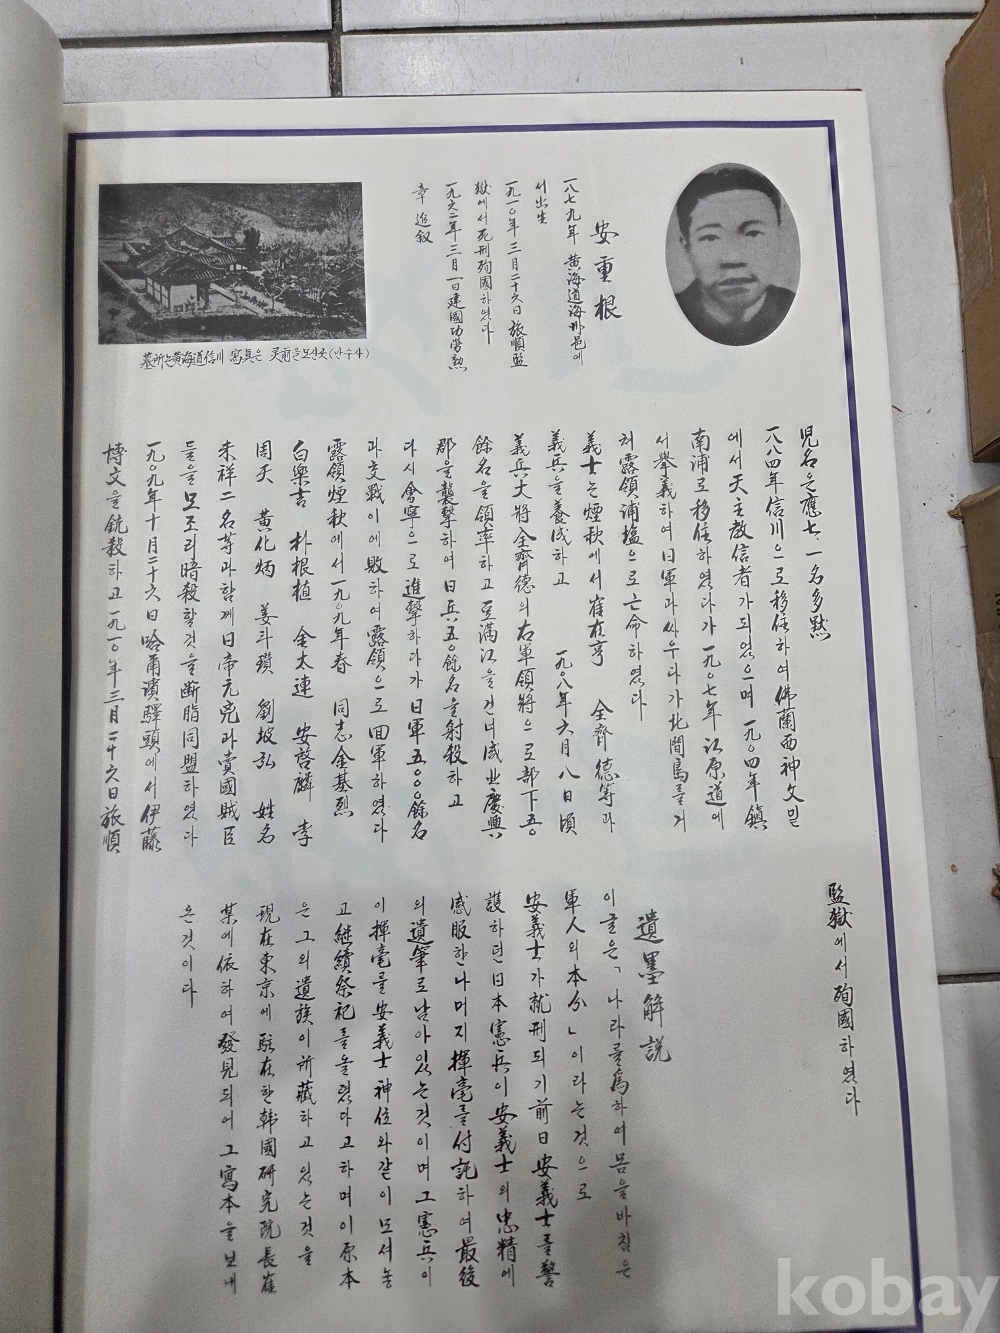 安重根
一八七九年 黃海道海州邑에
서出生
一九一○年 三月二十六日 旅順監
獄에서 死刑殉國하였다
一九六二年 三月一日 建國功勞勲
章 追叙
墓所는黃海道信川 寫眞은
兒名은應七 一名多黙
一八八四年信川으로移住하여佛蘭西神父밑
에서天主敎信者가되였으며 一九○四年鎮
南浦로移住하였다가 一九○七年江原道에
서擧義하여日軍과싸우다가北間島를거
처露領浦塩으로亡命하였다
義士는煙秋에서崔在亨 全齊德等과
義兵을養成하고 一九○八年六月八日頃
義兵大將全齊德의右軍領將으로部下五○
餘名을領率하고 豆滿江을건너咸北慶興
郡을襲擊하여日兵五○餘名을射殺하고
다시會寧으로進擊하다가日軍五○○○餘名
과交戰이에敗하여露領으로回軍하였다
露領煙秋에서一九○九年春 同志金基烈
白樂吉 朴根植 金太連 安啓麟 李
周天 黃化炳 姜斗瓚 劉坡弘 姓名
未詳二名等과함께日帝元兇과賣國賊臣
들을모조리暗殺할것을斷脂同盟하였다
一九○九年十月二十六日哈甭濱驛頭에서伊藤
博文을銃殺하고一九一○年三月二十六日旅順
監獄에서殉國하였다
遺墨解說
이글은「나라를爲하여몸을바침은
軍人의本分」이라는것으로
安義士가就刑되기前日安義士를警
護하던日本憲兵이安義士의忠精에
感服한나머지揮毫를付託하여最後
의遺筆로남아있는것이며그憲兵이
이揮毫를安義士神位와같이모셔놓
고繼續祭祀를올렸다고하며이原本
은그의遺族이所藏하고있는것을
現在東京에駐在한韓國研究院長崔
某에依하여發見되어그寫本을보내
온것이다
kobay